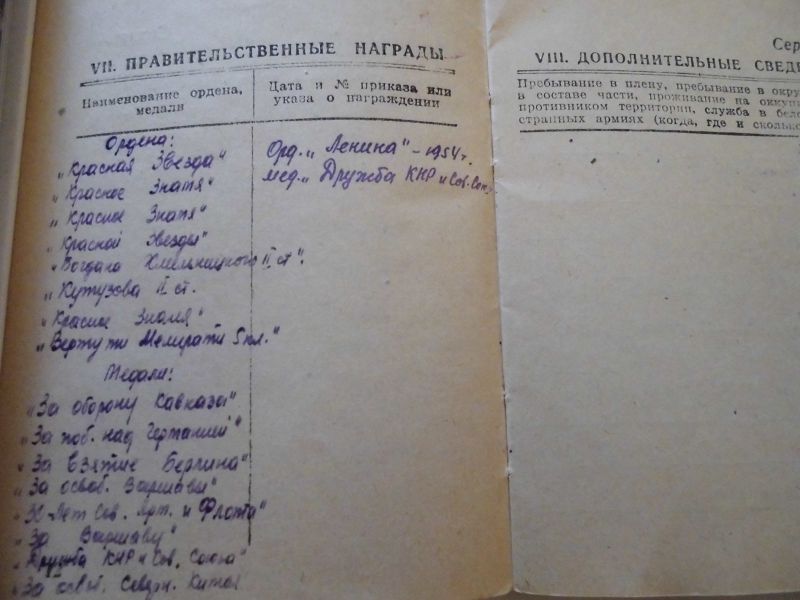 VII. ПРАВИТЕЛЬСТВЕННЫЕ НАГРАДЫ
Наименование ордена, медали
Дата и № приказа или указа о награждении
Ордена:
„Красная Звезда"
„Красное Знамя"
„Красное Знамя"
„Красной Звезды"
„Богдана Хмельницкого II ст".
„Кутузова II ст.
„Красное Знамя"
„Вертути Мелитати 5 кл."
Медали:
„За оборону Кавказа"
„За поб. над Германией"
„За взятие Берлина"
„За освоб. Варшавы"
„30 лет Сов. Арм. и Флота"
„За Варшаву"
„Дружба КНР и Сов. Союза"
„За освоб. Китая
Орд. „Ленина" – 1954 г.
мед. „Дружба КНР и Сов. Сою
Сер
VIII. ДОПОЛНИТЕЛЬНЫЕ СВЕДЕ
Пребывание в плену, пребывание в окру
в составе части, проживание на оккуп
противником территории, служба в бело
странных армиях (когда, где и сколько